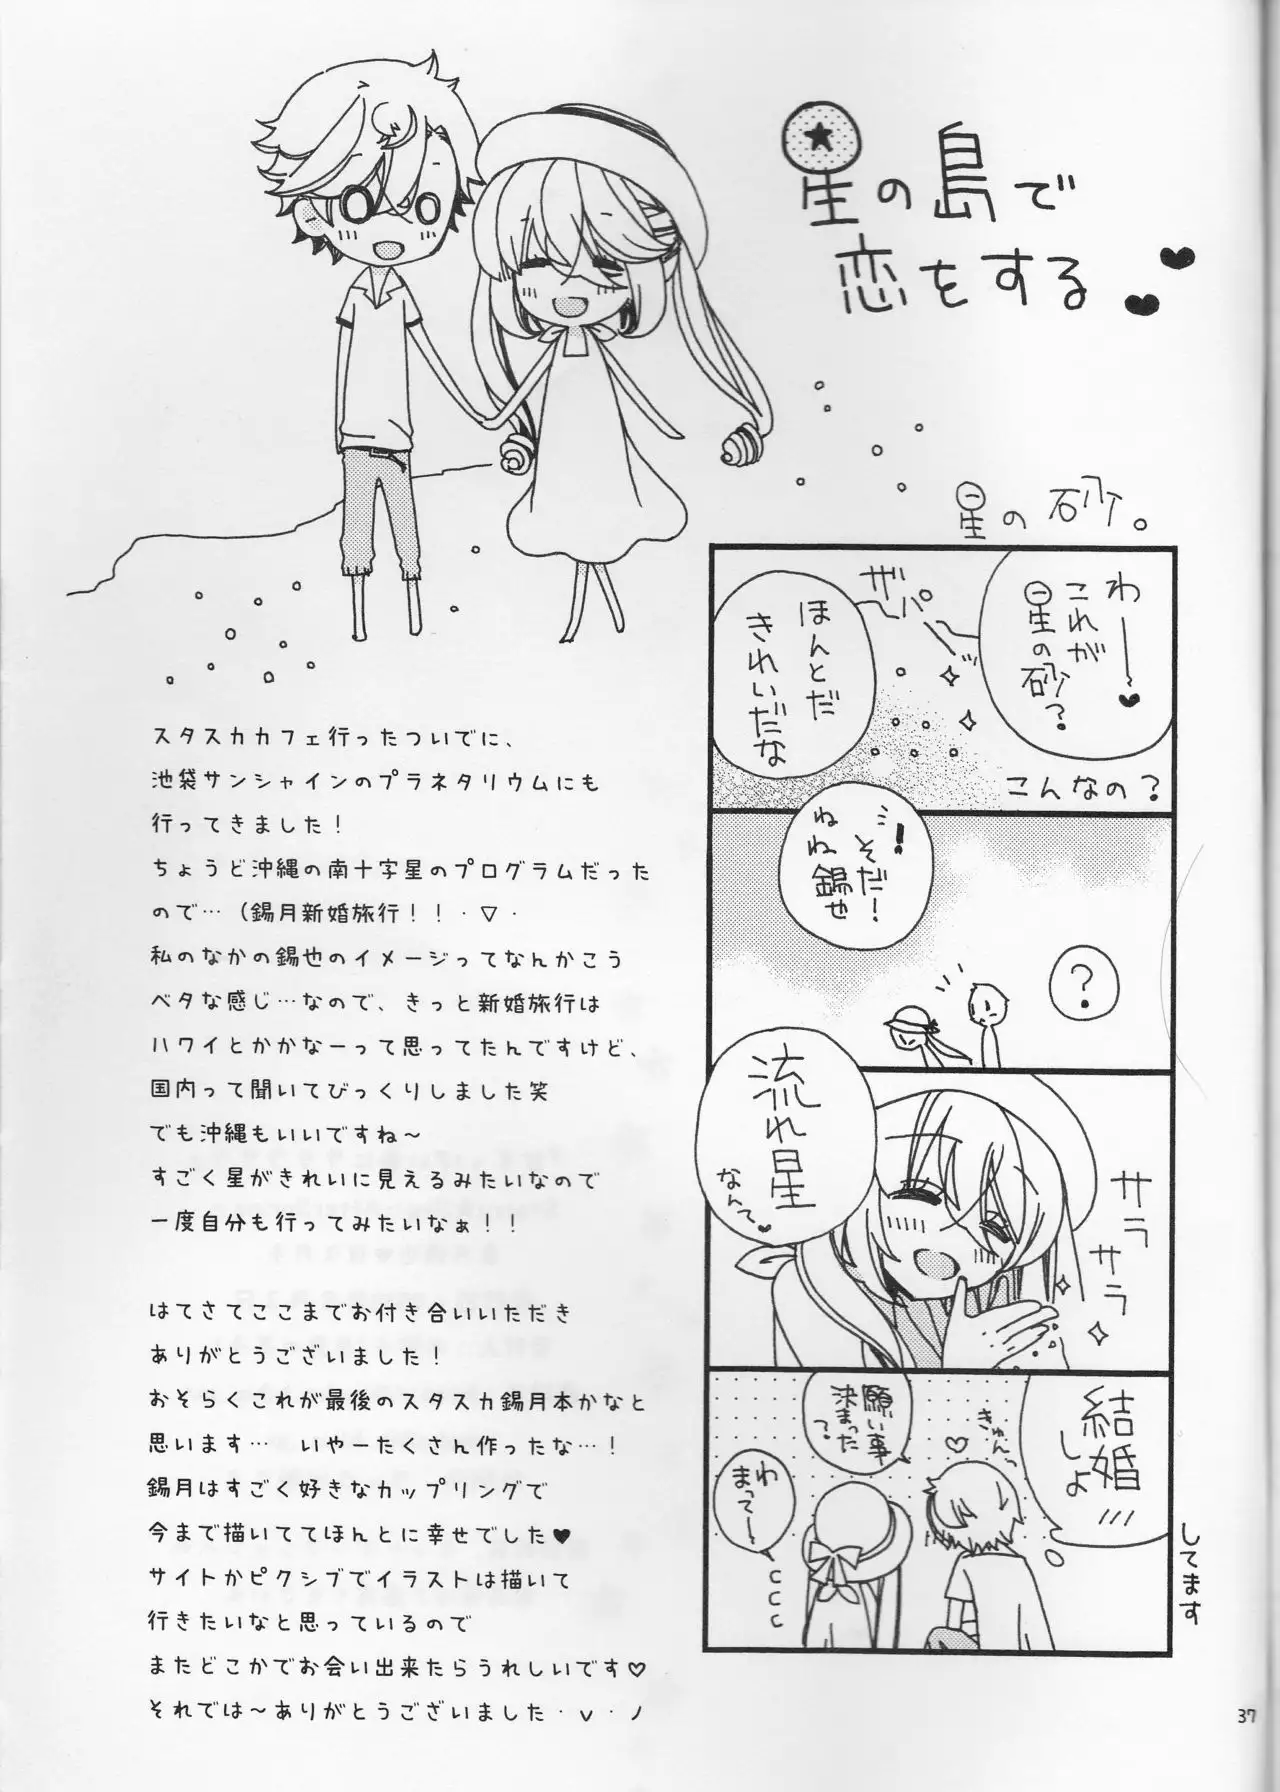 星の島で
恋をする
星の砂。
わーー♥
これが
星の砂?
こんなの?
ザパン
ほんとだ
きれいだな
!
そだ!
ねね錫也
?
流れ星
なんて♥
サラサラ
結婚
しよ
してます
きゅん
♡
願い事
決まった
?
わ
まってー
スタスカカフェ行ったついでに、
池袋サンシャインのプラネタリウムにも
行ってきました!
ちょうど沖縄の南十字星のプログラムだった
ので…(錫月新婚旅行!!・▽・
私のなかの錫也のイメージってなんかこう
ベタな感じ…なので、きっと新婚旅行は
ハワイとかかなーって思ってたんですけど、
国内って聞いてびっくりしました笑
でも沖縄もいいですね~
すごく星がきれいに見えるみたいなので
一度自分も行ってみたいなぁ!!
はてさてここまでお付き合いいただき
ありがとうございました!
おそらくこれが最後のスタスカ錫月本かなと
思います… いやーたくさん作ったな…!
錫月はすごく好きなカップリングで
今まで描いててほんとに幸せでした♥
サイトかピクシブでイラストは描いて
行きたいなと思っているので
またどこかでお会い出来たらうれしいです♡
それでは~ありがとうございました・v・ノ
37